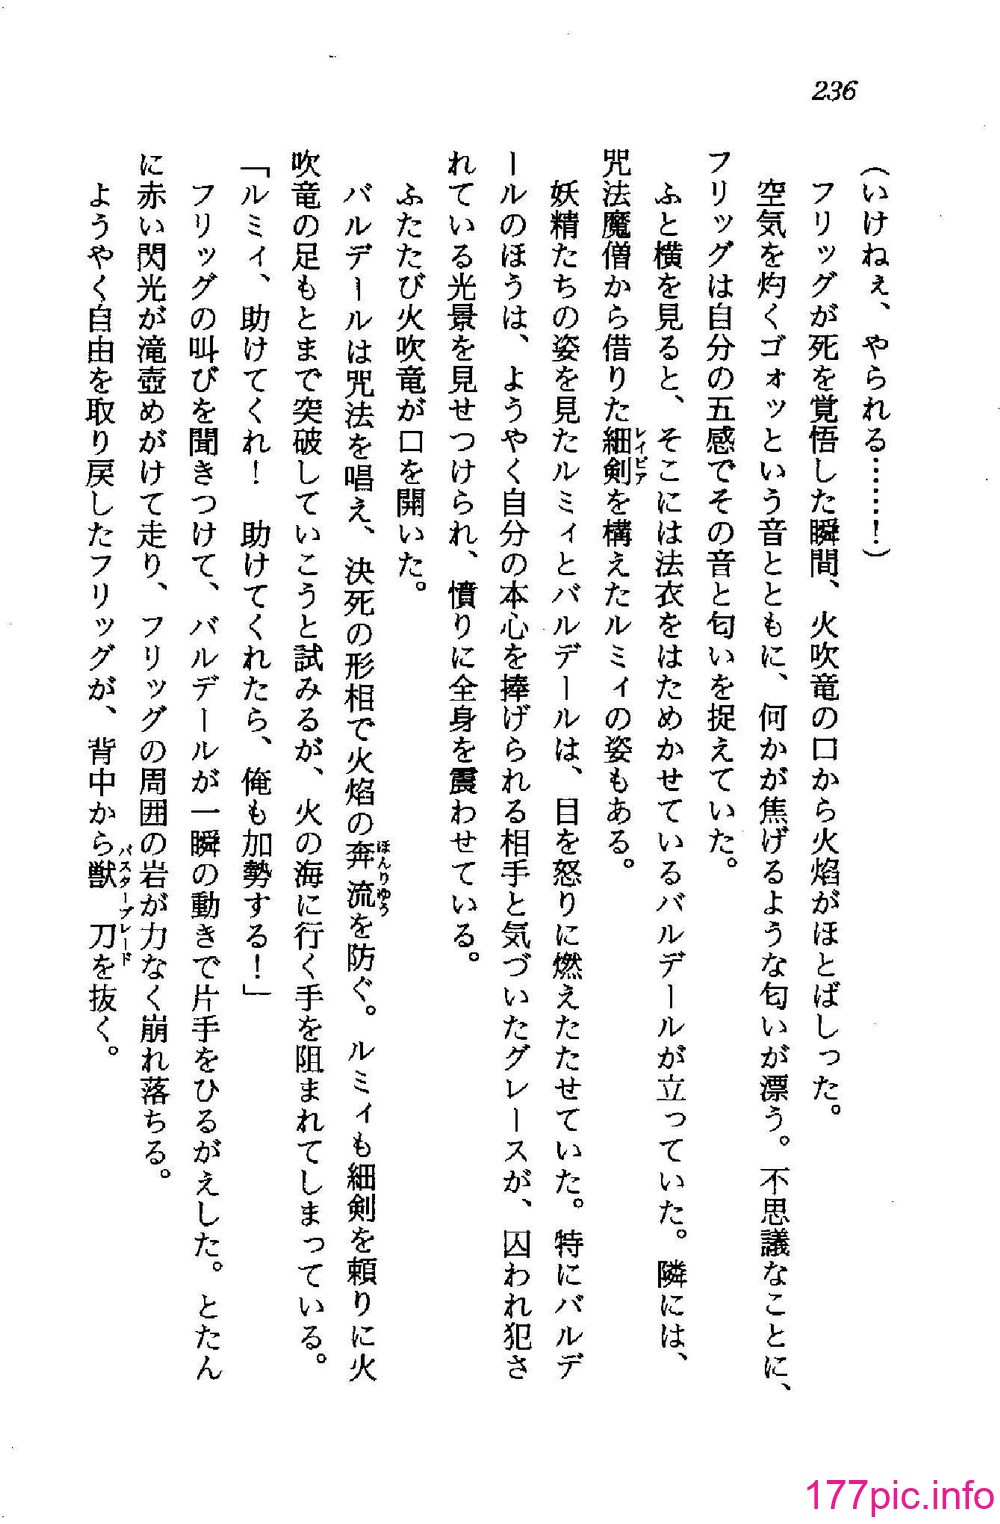 236
（いけねぇ、やられる……！）
　フリッグが死を覚悟した瞬間、火吹竜の口から火焰がほとばしった。
　空気を灼くゴォッという音とともに、何かが焦げるような匂いが漂う。不思議なことに、
フリッグは自分の五感でその音と匂いを捉えていた。
　ふと横を見ると、そこには法衣をはためかせているバルデールが立っていた。隣には、
呪法魔僧から借りた細剣を構えたルミィの姿もある。
レイピア
　妖精たちの姿を見たルミィとバルデールは、目を怒りに燃えたたせていた。特にバルデ
ールのほうは、ようやく自分の本心を捧げられる相手と気づいたグレースが、囚われ犯さ
れている光景を見せつけられ、憤りに全身を震わせている。
　ふたたび火吹竜が口を開いた。
　バルデールは呪法を唱え、決死の形相で火焰の奔流を防ぐ。ルミィも細剣を頼りに火
ほんりゅう
吹竜の足もとまで突破していこうと試みるが、火の海に行く手を阻まれてしまっている。
「ルミィ、助けてくれ！　助けてくれたら、俺も加勢する！」
　フリッグの叫びを聞きつけて、バルデールが一瞬の動きで片手をひるがえした。とたん
に赤い閃光が滝壺めがけて走り、フリッグの周囲の岩が力なく崩れ落ちる。
　ようやく自由を取り戻したフリッグが、背中から獣刀を抜く。
バスターブレード
177pic.info